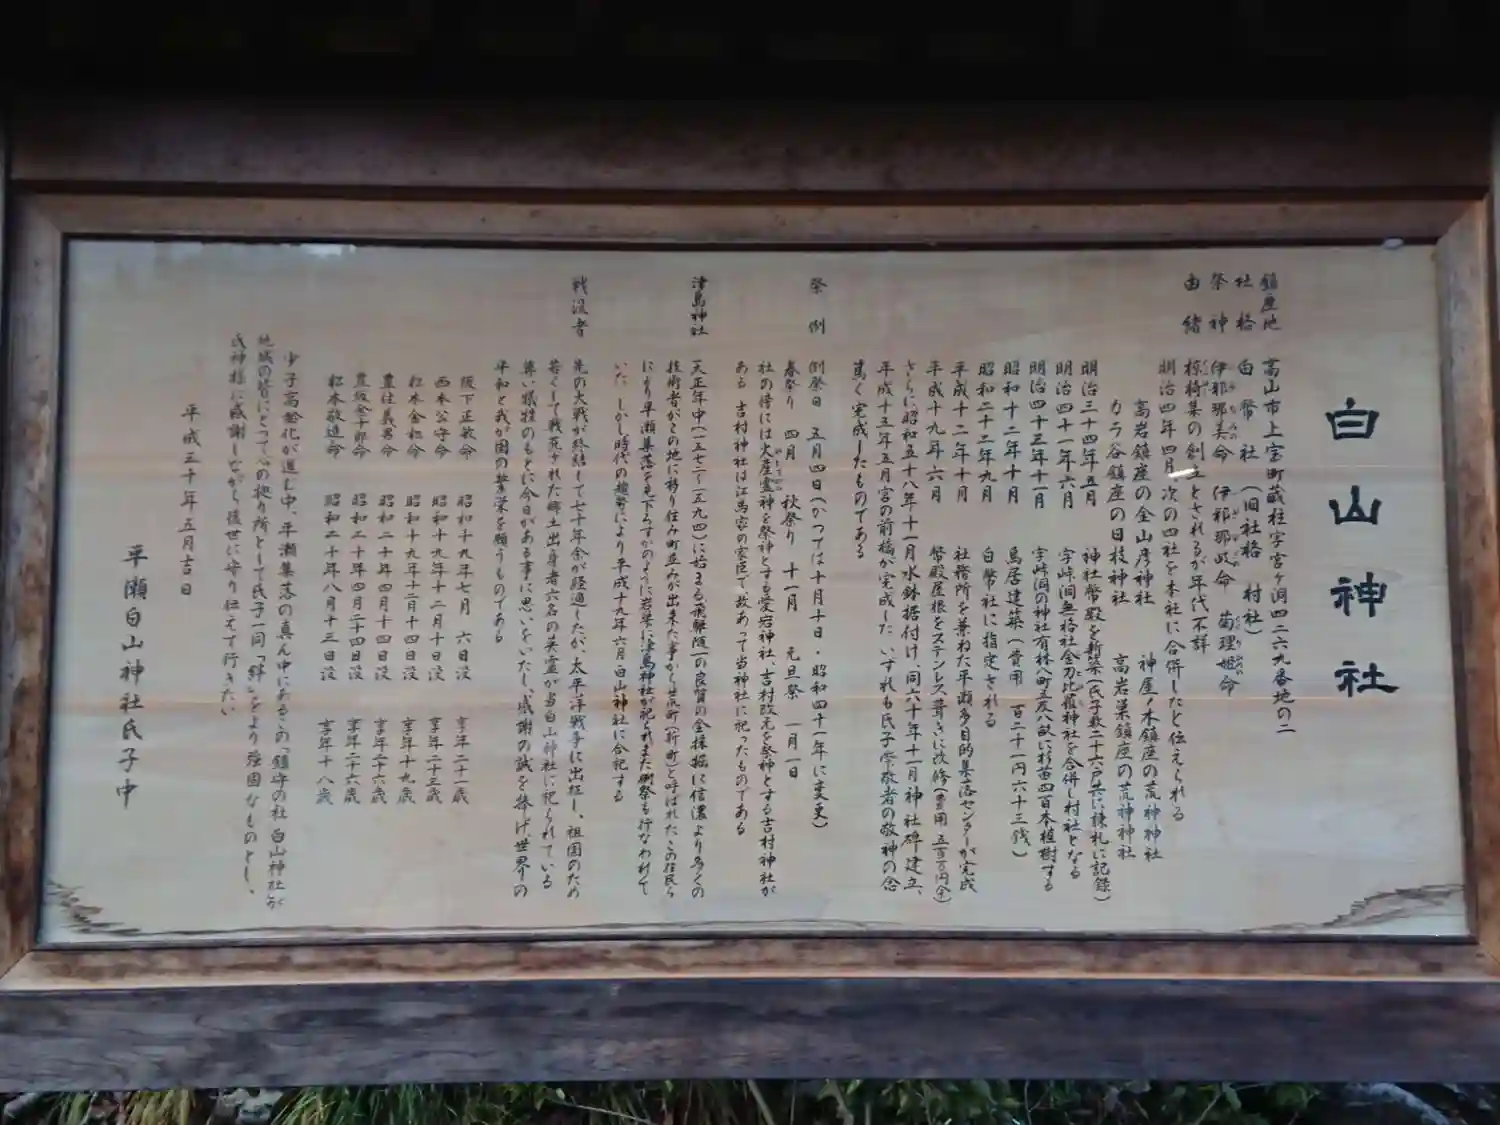 白山神社
鎮座地 高山市上宝町蔵柱字宮ヶ洞四二六九番地の二
社格 白幣社（旧社格 村社）
祭神 伊邪那美命 伊邪那岐命 菊理姫命
由緒 椋椅集の創立とされるが年代不詳
明治四年四月 次の四社を本社に合併したと伝えられる
高岩鎮座の金山彦神社 神屋ノ木鎮座の荒神神社
カラ谷鎮座の日枝神社 高岩巣鎮座の荒神神社
明治三十四年五月 神社幣殿を新築（氏子数二十六戸共に棟札に記録）
明治四十一年六月 字峠洞無格社金刀比羅神社を合併し村社となる
明治四十三年十一月 字峠洞の神社有林八町五反八畝に杉苗四百本植樹する
昭和十二年十月 鳥居建築（費用 百二十一円六十三銭）
昭和二十二年九月 白幣社に指定される
平成十二年十月 社務所を兼ねた平瀬多目的集落センターが完成
平成十九年六月 幣殿屋根をステンレス葺きに改修（費用 五百万円余）
さらに昭和五十八年十一月水鉢据付け、同六十年十一月神社碑建立、
平成十五年五月宮の前橋が完成した いずれも氏子崇敬者の敬神の念
篤く完成したものである
祭例 例祭日 五月四日（かつては十月十日・昭和四十一年に変更）
春祭り 四月 秋祭り 十一月 元旦祭 一月一日
社の傍には火産霊神を祭神とする愛宕神社、吉村改元を祭神とする吉村神社が
ある 吉村神社は江馬家の家臣で故あって当神社に祀ったものである
津島神社 天正年中（一五七三～一五九四）に始まる飛騨随一の良質の金採掘に信濃より多くの
技術者がこの地に移り住み町並みが出来た事から荒町（新町）と呼ばれた この住民ら
により平瀬集落を見下ろすかのように岩巣に津島神社が祀られまた例祭も行なわれて
いた しかし時代の趨勢により平成十九年六月白山神社に合祀する
戦没者 先の大戦が終結して七十年余が経過したが、太平洋戦争に出征し、祖国のため
若くして戦死された郷土出身者六名の英霊が当白山神社に祀られている
尊い犠牲のもとに今日がある事に思いをいたし、感謝の誠を捧げ、世界の
平和と我が国の繁栄を願うものである
阪下正敏命 昭和十九年七月 六日没 享年二十一歳
西本公守命 昭和十九年十二月十日没 享年二十三歳
松本金松命 昭和十九年十二月十四日没 享年十九歳
豊住義男命 昭和二十年四月十四日没 享年二十六歳
豊坂金十郎命 昭和二十年四月二十四日没 享年二十六歳
松本敬造命 昭和二十年八月十三日没 享年十八歳
少子高齢化が進む中、平瀬集落の真ん中にあるこの「鎮守の社 白山神社」が
地域の皆にとって心の拠り所として氏子一同「絆」をより強固なものとし、
氏神様に感謝しながら後世に守り伝えて行きたい
平成三十年五月吉日
平瀬白山神社氏子中